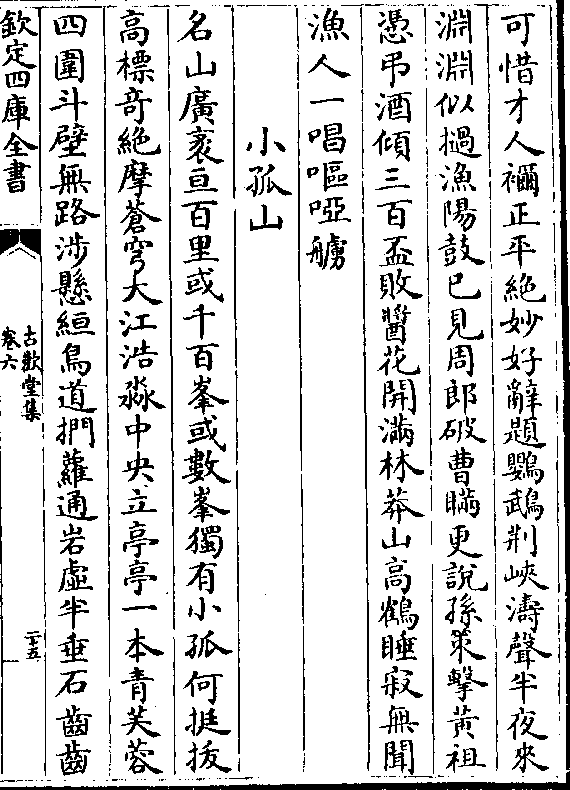 可惜才人禰正平絶妙好辭題鸚鵡荆峽濤聲半夜來
淵淵似撾漁陽鼓已見周郎破曹瞞更說孫策擊黄祖
憑弔酒傾三百盃敗醬花開滿林莽山高鶴睡寂無聞
漁人一唱嘔啞艣
小孤山
名山廣袤亘百里或千百峯或數峯獨有小孤何挺拔
高標奇絶摩蒼穹大江浩淼中央立亭亭一本青芙蓉
四圍斗壁無路涉懸絙鳥道捫蘿通岩虛半垂石齒齒
欽定四庫全書
古歡堂集
卷六
二十五